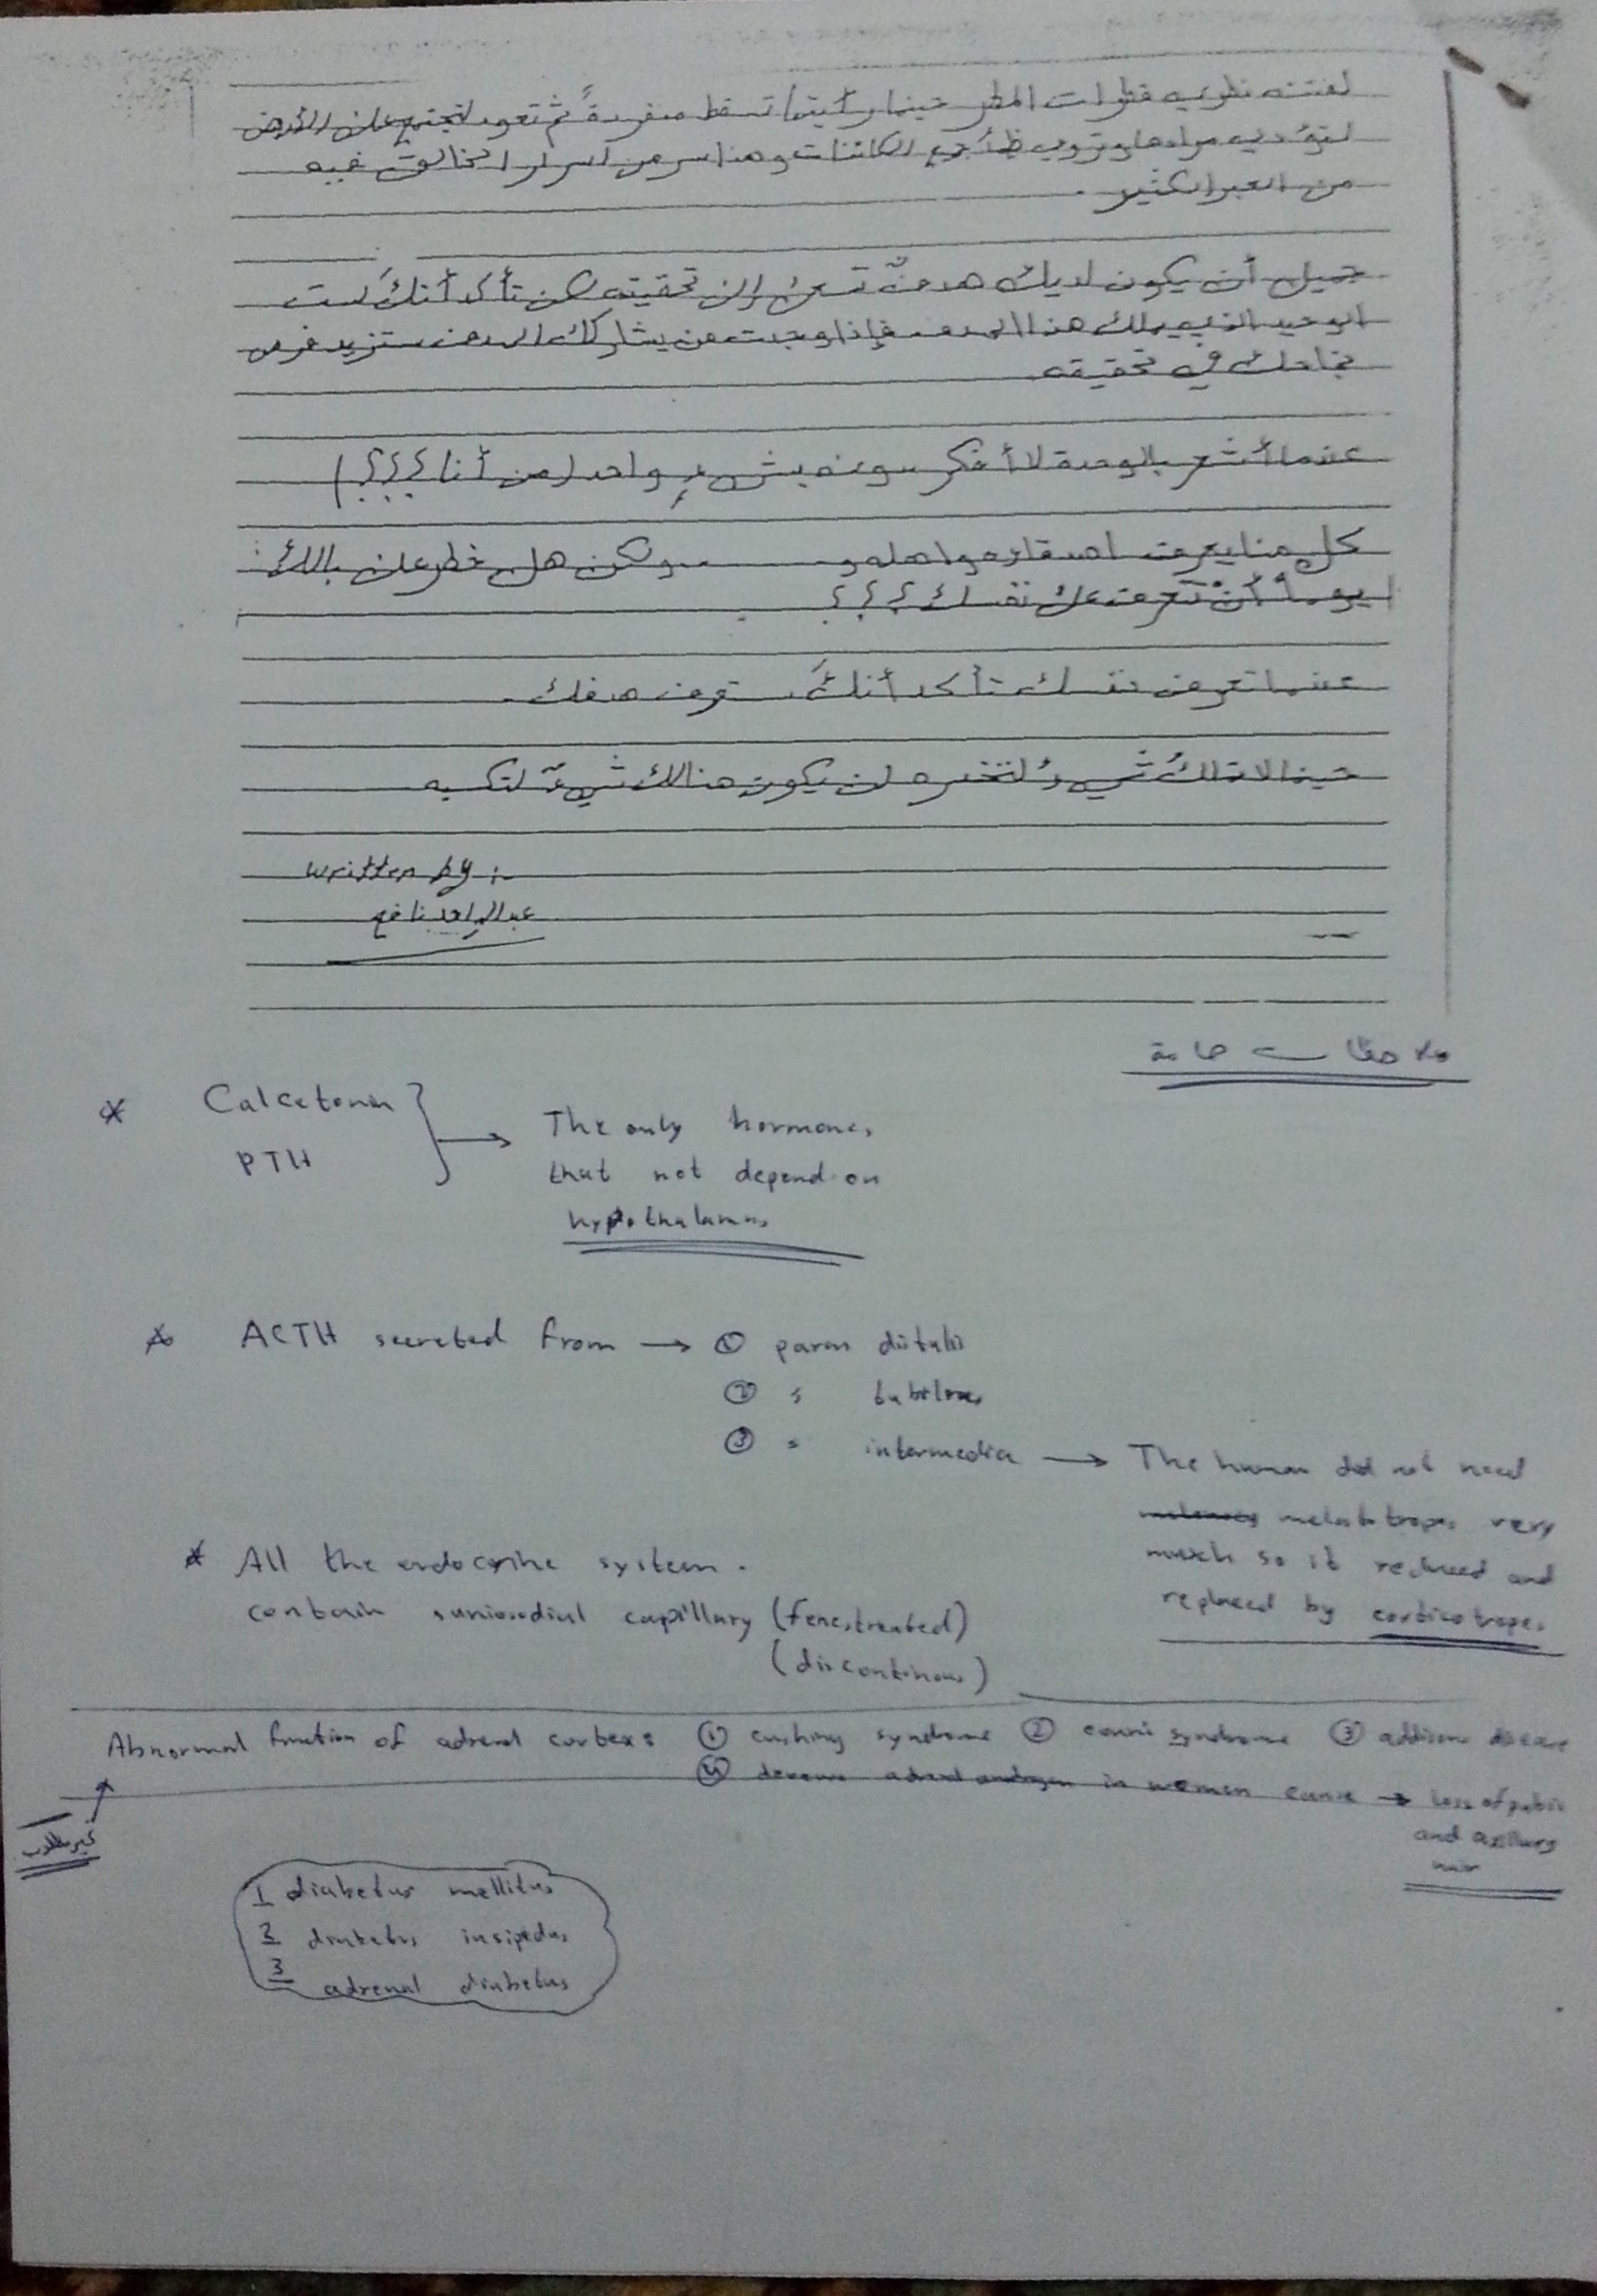 لفتت نظري قطرات المطر حينما رأيتها تسقط منفردةً ثم تعود لتجتمع على الأرض
لتؤدي مرادها وتروي ظمأ جميع الكائنات وهذا سر من أسرار الخالق فيه
من العبر الكثير.
جميل أن يكون لديك هدفٌ تسعى إلى تحقيقه لكن تأكد أنكَ لست
الوحيد الذي يملك هذا الهدف فإذا وجدت من يشاركك الهدف ستزيد فرص
نجاحك في تحقيقه
عندما أشعر بالوحدة لا أفكر سوى بشيءٍ واحد (من أنا ؟؟؟)
كل منا يعرف اصدقاءه واهله و ...... ولكن هل خطر على بالك
يوماً أن تتعرف على نفسك ؟؟؟
عندما تعرف نفسك تأكد أنكَ ستعرف هدفك.
حينما لا تملكُ شيءً لتخسره لن يكون هنالك شيءٌ لتكسبه
written by :-
عبد الواحد نافع
ملاحظات هامة
* Calcetonin
PTH
} → The only hormones
that not depend on
hypothalamus
* ACTH secreted from → ① pars distalis
② " tubelras
③ " intermedia → The human did not need
melatotropes very
much so it reduced and
replaced by corticotropes
* All the endocrine system.
contain sunisodial capillary (fenestreated)
(discontinous)
Abnormal function of adrenal cortex: ① cushing syndrome ② conns syndrome ③ addisons disease
④ adrenal androgen in women cause → loss of pubic
and axillary
hair
غير مطلوب
1 diabetus mellitus
2 diabetus insipedus
3 adrenal diabetus